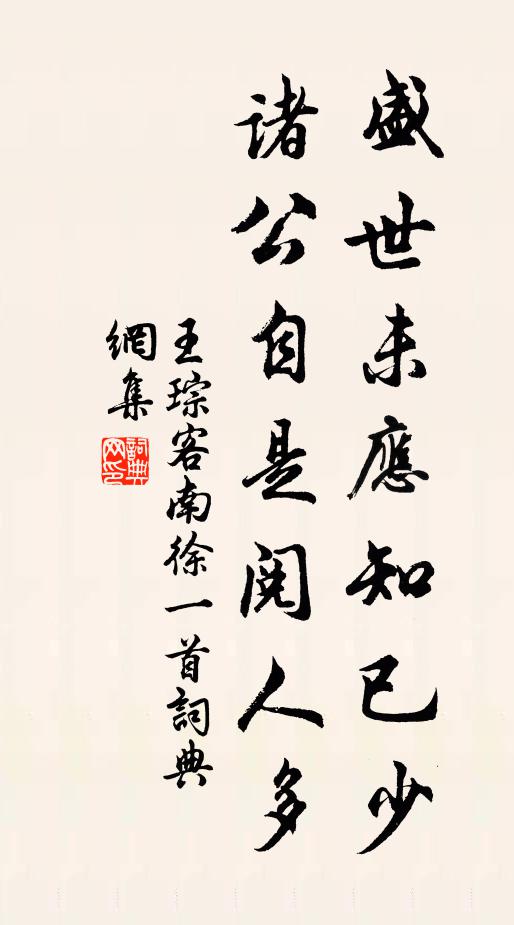 盛世未應知已少
諸公自是閱人多
王琮客南徐一首詞典
網集
詞典網印